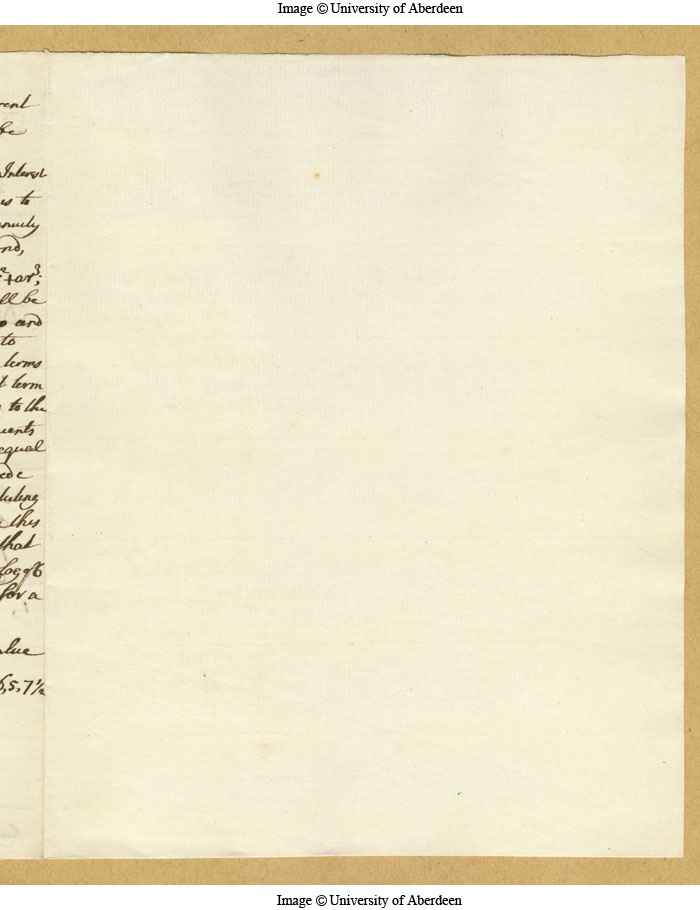 Image © University of Aberdeen
be
Interest
is to
nnuity
nd,
²+ar³;
ll be
and
to
terms
term
to the
uents
equal
ede
luting
this
that
Log of b
for a
alue
6,5,7½
Image © University of Aberdeen